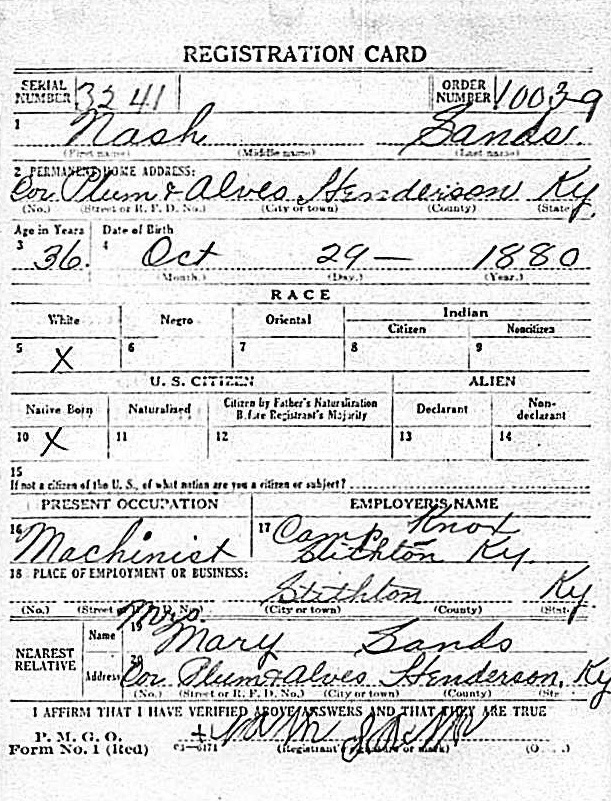 REGISTRATION CARD
SERIAL NUMBER 3241 ORDER NUMBER 10039
1 Nash Sands
(First name) (Middle name) (Last name)
2 PERMANENT HOME ADDRESS:
Cor Plum & Alves Henderson Ky.
(No.) (Street or R. F. D. No.) (City or town) (County) (State)
Age in Years Date of Birth
3 36. 4 Oct 29 — 1880
(Month.) (Day.) (Year.)
RACE
White Negro Oriental Indian
Citizen Noncitizen
5 X 6 7 8 9
U. S. CITIZEN ALIEN
Native Born Naturalized Citizen by Father's Naturalization Before Registrant's Majority Declarant Non-declarant
10 X 11 12 13 14
15
If not a citizen of the U. S., of what nation are you a citizen or subject?
PRESENT OCCUPATION EMPLOYER'S NAME
16 Machinist 17 Camp Knox
Stithton Ky.
18 PLACE OF EMPLOYMENT OR BUSINESS:
Stithton Ky.
(No.) (Street or R. F. D. No.) (City or town) (County) (State)
NEAREST RELATIVE Name 19 Mrs. Mary Sands
Address 20 Cor Plum & Alves Henderson, Ky
(No.) (Street or R. F. D. No.) (City or town) (County) (State)
I AFFIRM THAT I HAVE VERIFIED ABOVE ANSWERS AND THAT THEY ARE TRUE
P. M. G. O.
Form No. 1 (Red) (Registrant's signature or mark)